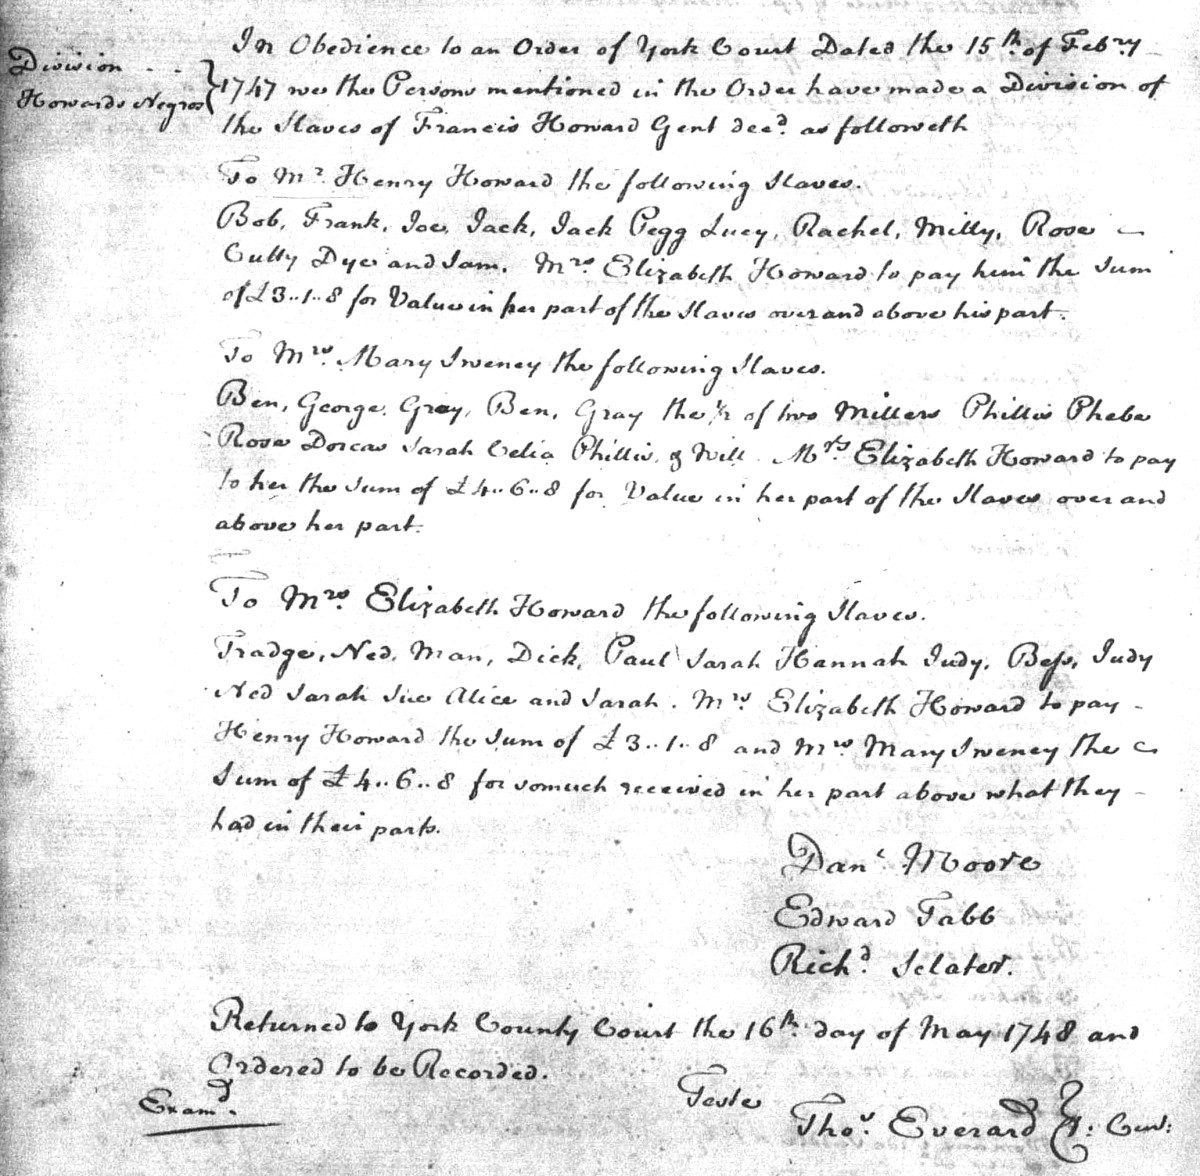 In Obedience to an Order of York Court Dated the 15th of Febry
Division
Howards Negros
1747 we the Persons mentioned in the Order have made a Division of
the Slaves of Francis Howard Gent decd. as followeth
To Mr. Henry Howard the following Slaves.
Bob, Frank, Joe, Jack, Jack Pegg Lucy, Rachel, Milly, Rose
Cutty Dye and Sam. Mrs. Elizabeth Howard to pay him the Sum
of £3..1..8 for Value in her part of the Slaves over and above his part.
To Mrs. Mary Sweney the following Slaves.
Ben, George, Gray, Ben, Gray the 1/2 of two Millers Phillis Phebe
Rose Dorcas Sarah Celia Phillis, & Will. Mrs. Elizabeth Howard to pay
to her the Sum of £4..6..8 for Value in her part of the Slaves over and
above her part.
To Mrs. Elizabeth Howard the following Slaves.
Fradge, Ned, Man, Dick, Paul Sarah Hannah Judy, Bess, Judy
Ned Sarah Sue Alice and Sarah. Mrs Elizabeth Howard to pay
Henry Howard the Sum of £3..1..8 and Mrs Mary Sweney the
Sum of £4..6..8 for somuch received in her part above what they
had in their parts.
Danl. Moore
Edward Tabb
Richd. Sclater.
Returned to York County Court the 16th. day of May 1748 and
Ordered to be Recorded.
Examd.
Teste
Thos. Everard Cl: Cur: